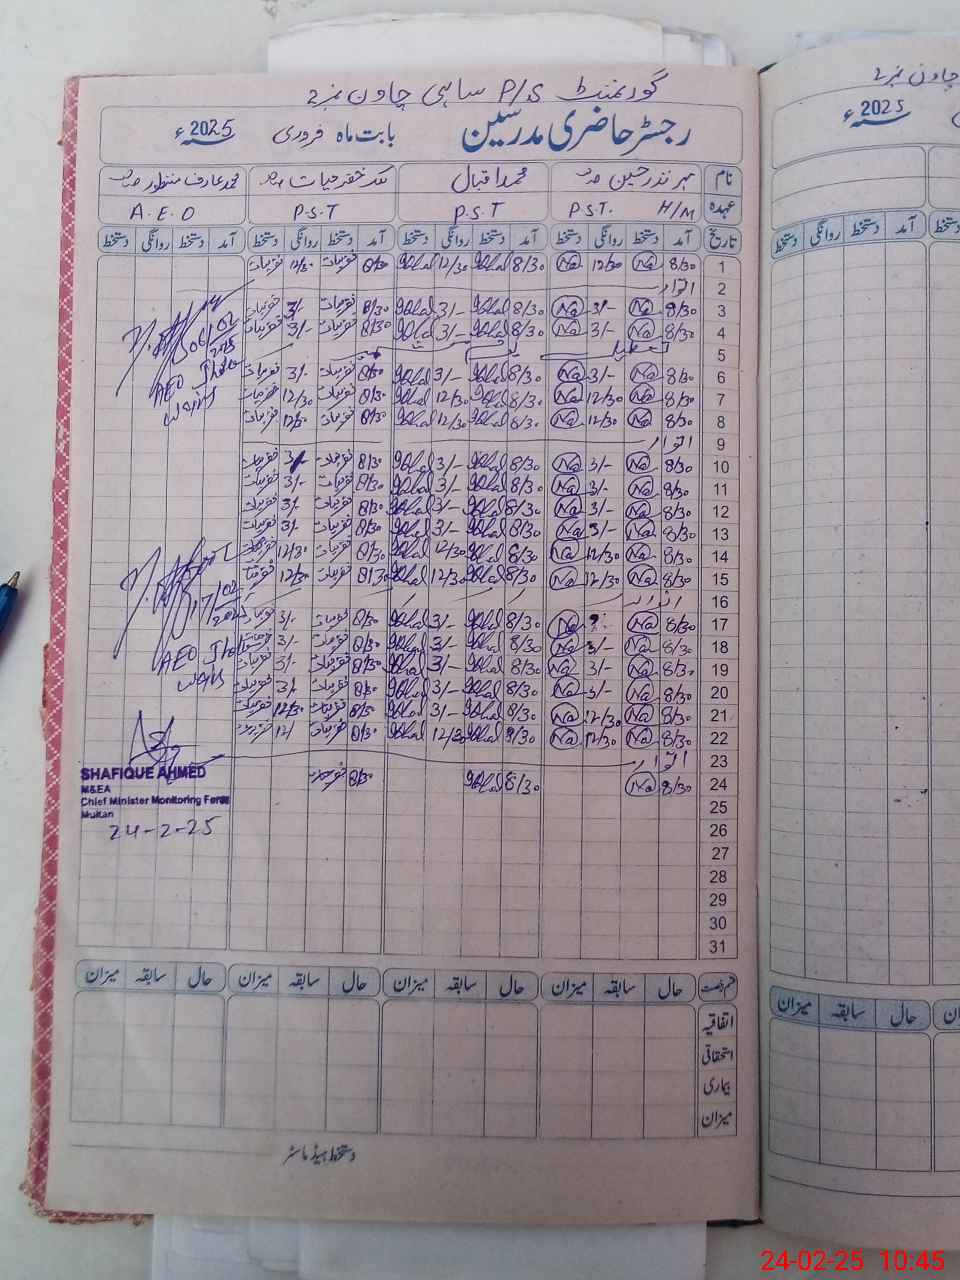 گورنمنٹ P/S ساہی چاون نمبر 2
رجسٹر حاضری مدرسین بابت ماہ فروری سنہ 2025ء
نام مہر نذر حسین صاحب محمد اقبال ملک خضر حیات صاحب محمد عارف منظور صاحب
عہدہ H/M P.S.T. P.S.T P.S.T A.E.O
تاریخ آمد دستخط روانگی دستخط آمد دستخط روانگی دستخط آمد دستخط روانگی دستخط آمد دستخط روانگی دستخط
1 8/30 Na 12/30 Na 8/30 Iqbal 12/30 Iqbal 8/30 12/30
2 اتوار
3 8/30 Na 3/- Na 8/30 Iqbal 3/- Iqbal 8/30 3/-
4 8/30 Na 3/- Na 8/30 Iqbal 3/- Iqbal 8/30 3/-
5 تعطیل
6 8/30 Na 3/- Na 8/30 Iqbal 3/- Iqbal 8/30 3/-
7 8/30 Na 12/30 Na 8/30 Iqbal 12/30 Iqbal 8/30 12/30
8 8/30 Na 12/30 Na 8/30 Iqbal 12/30 Iqbal 8/30 12/30
9 اتوار
10 8/30 Na 3/- Na 8/30 Iqbal 3/- Iqbal 8/30 3/-
11 8/30 Na 3/- Na 8/30 Iqbal 3/- Iqbal 8/30 3/-
12 8/30 Na 3/- Na 8/30 Iqbal 3/- Iqbal 8/30 3/-
13 8/30 Na 3/- Na 8/30 Iqbal 3/- Iqbal 8/30 3/-
14 8/30 Na 12/30 Na 8/30 Iqbal 12/30 Iqbal 8/30 12/30
15 8/30 Na 12/30 Na 8/30 Iqbal 12/30 Iqbal 8/30 12/30
16 اتوار
17 8/30 Na Na 8/30 Iqbal 3/- Iqbal 8/30 3/-
18 8/30 Na 3/- Na 8/30 Iqbal 3/- Iqbal 8/30 3/-
19 8/30 Na 3/- Na 8/30 Iqbal 3/- Iqbal 8/30 3/-
20 8/30 Na 3/- Na 8/30 Iqbal 3/- Iqbal 8/30 3/-
21 8/30 Na 12/30 Na 8/30 Iqbal 3/- Iqbal 8/30 12/30
22 8/30 Na 12/30 Na 8/30 Iqbal 12/30 Iqbal 8/30 12/
23 اتوار
24 8/30 Na 8/30 Iqbal 8/30
25
26
27
28
29
30
31
06/02
2025
AEO
17/02
2025
AEO
SHAFIQUE AHMED
M&EA
Chief Minister Monitoring Force
Multan
24-2-25
قسم رخصت حال سابقہ میزان حال سابقہ میزان حال سابقہ میزان حال سابقہ میزان
اتفاقیہ
استحقاقی
بیماری
میزان
دستخط ہیڈ ماسٹر
چاون نمبر 2
سنہ 2025ء
آمد دستخط روانگی دستخط
حال سابقہ میزان
24-02-25 10:45